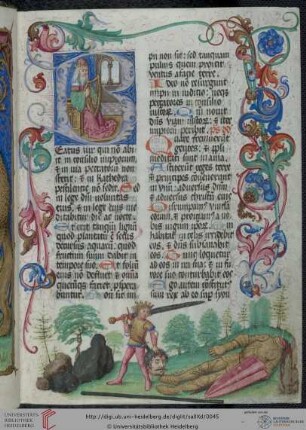 Eatus vir qui nō abi
it in consilio impiorum,
et in via peccatorū non
stetit: et in kathedra
pestilencie nō sedit. Sed
in lege dni voluntas
eius, et in lege eius me
ditabitur die ac nocte.
Et erit tanqȝ lignū
quod plantatū ē secus
decursus aquarū: quod
fructum suum dabit in
tempore suo. Et foliū
eius nō defluet: et omīa
quecūqȝ faciet prospera
buntur. Non sic im
pii non sic: sed tanquam
puluis quem proicit
ventus a facie terre.
Ideo nō resurgunt
impii in iudicio: neqȝ
peccatores in consilio
iustorū. Qm nouit
dns viam iustorū: et iter
impiorū peribit.
Quare fremuerūt
gentes: et ppli
meditati sunt inania.
Astiterūt reges terre
et principes conuenerūt
in vnū: aduersus dnm
et aduersus christū eius.
Dirumpamus vincla
eorum: et proiciam9 a no
bis iugum ipsorū. Qui
habitat in celis irridebit
eos: et dns subsannabit
eos. Tunc loquetur
ad eos in ira sua: et in fu
rore suo cōturbabit eos.
Ego autem cōstitut9
sum rex ab eo sup syon
UNIVERSITÄTS-
BIBLIOTHEK
HEIDELBERG
http://digi.ub.uni-heidelberg.de/diglit/sallXIc/0045
© Universitätsbibliothek Heidelberg